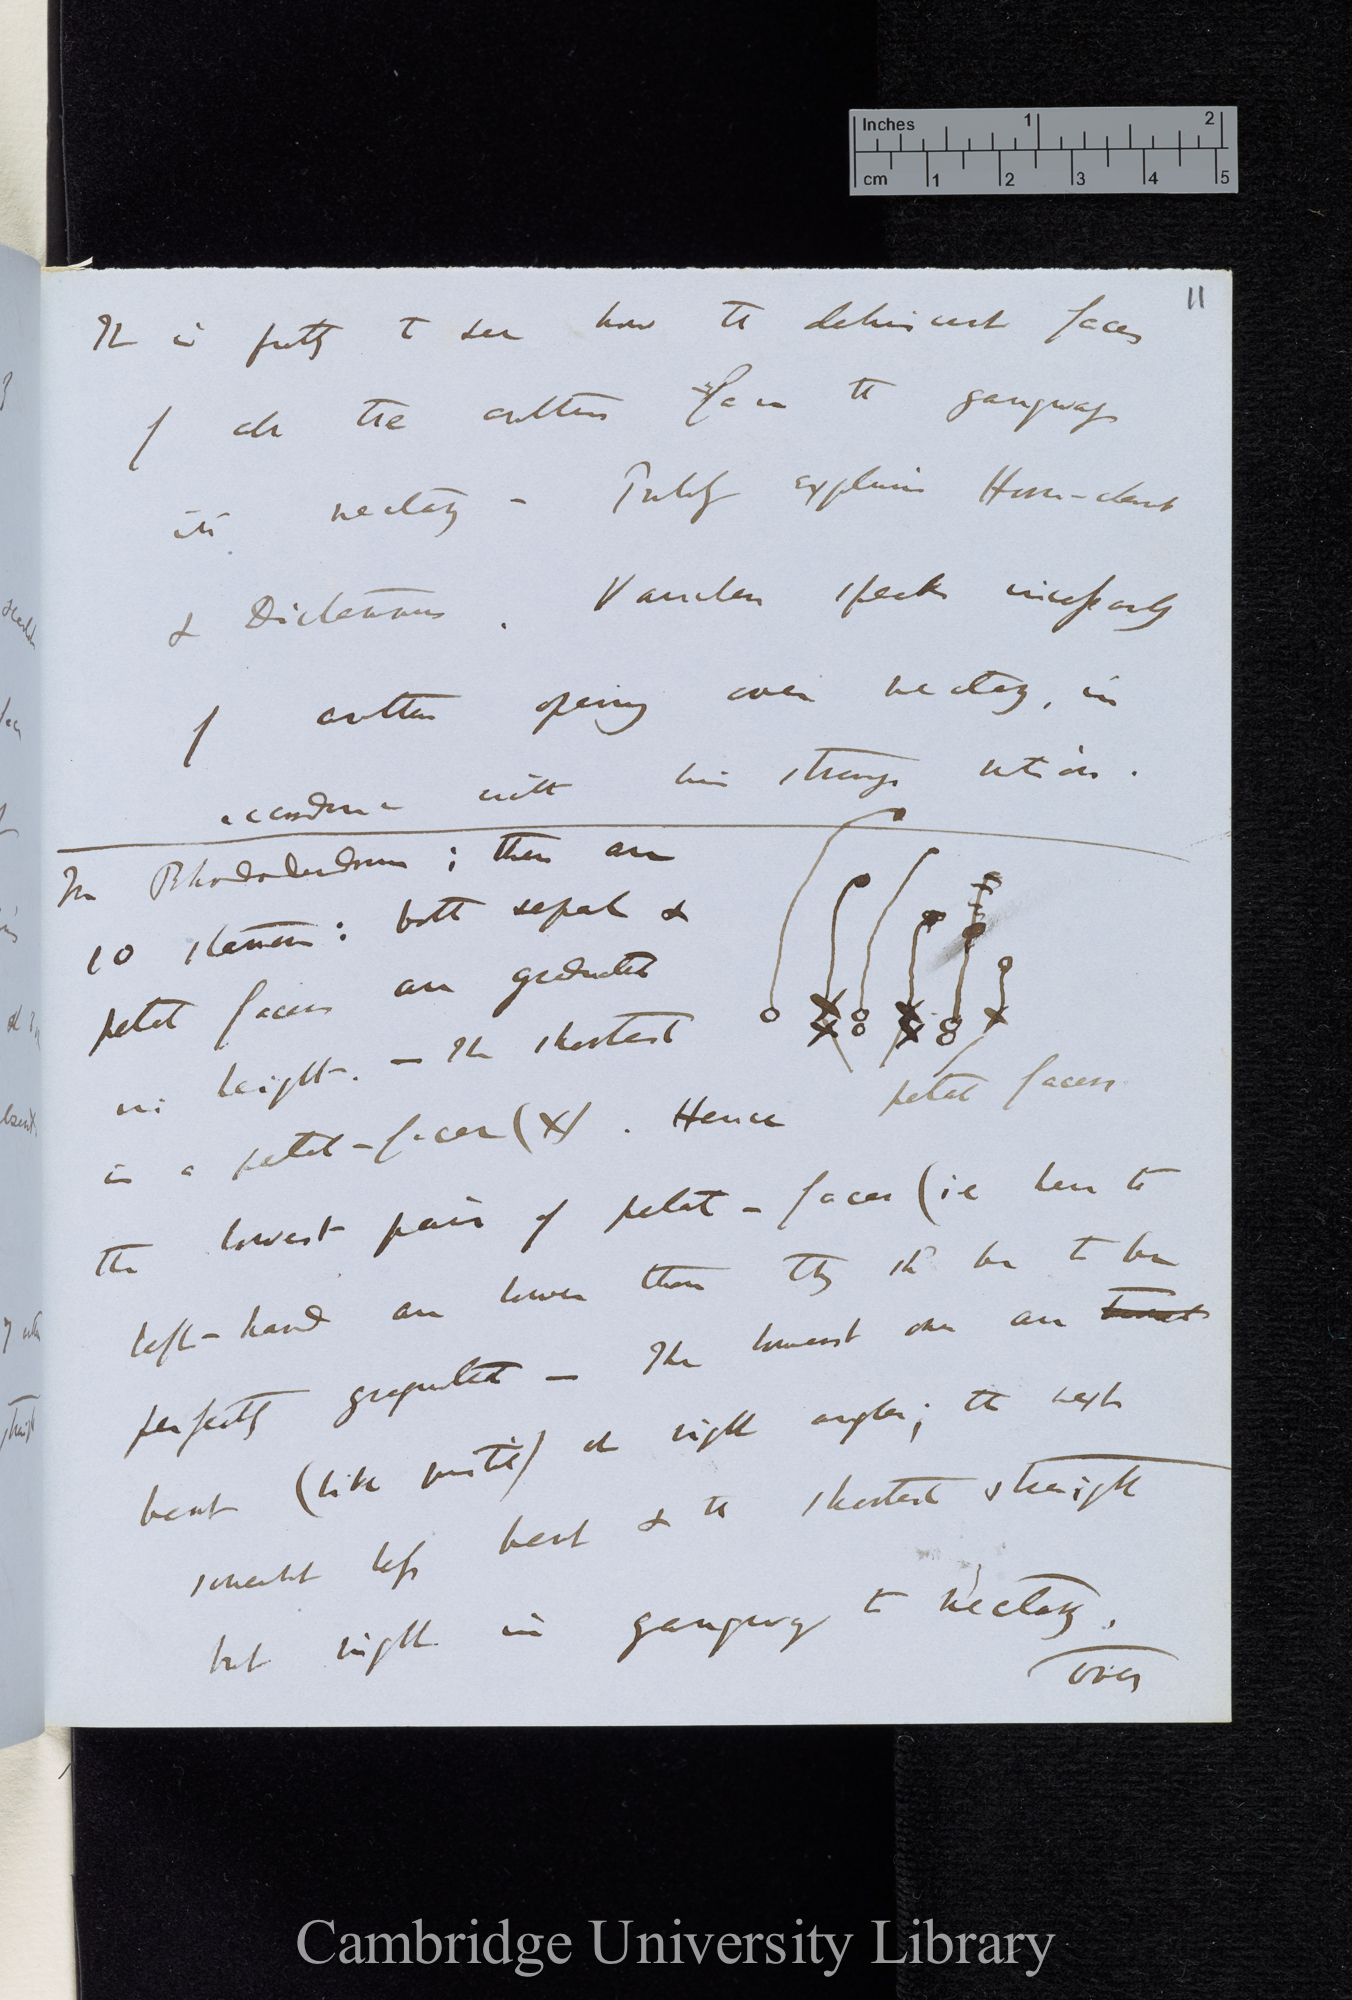 Inches 1 2
cm 1 2 3 4 5
11
It is pretty to see how the dehiscent faces
of all the anthers face the gangway
into nectary — Probably explains Horse-chesnut
& Dictamnus. Vaucher speaks incessantly
of anthers opening over nectary, in
accordance with his strange notion.
In Rhododendron; there are
10 stamens: both sepal &
petal facers are graduated
in height. — The shortest
is a petal-facer (X). Hence
petal facers
the lowest pair of petal-facers (ie here to
left-hand are lower than they shd be to be
perfectly graduated — The lowest ones are
bent (like pistil) at right angles; the next
somewhat less bent & the shortest straight
but right in gangway to nectary.
over
Cambridge University Library